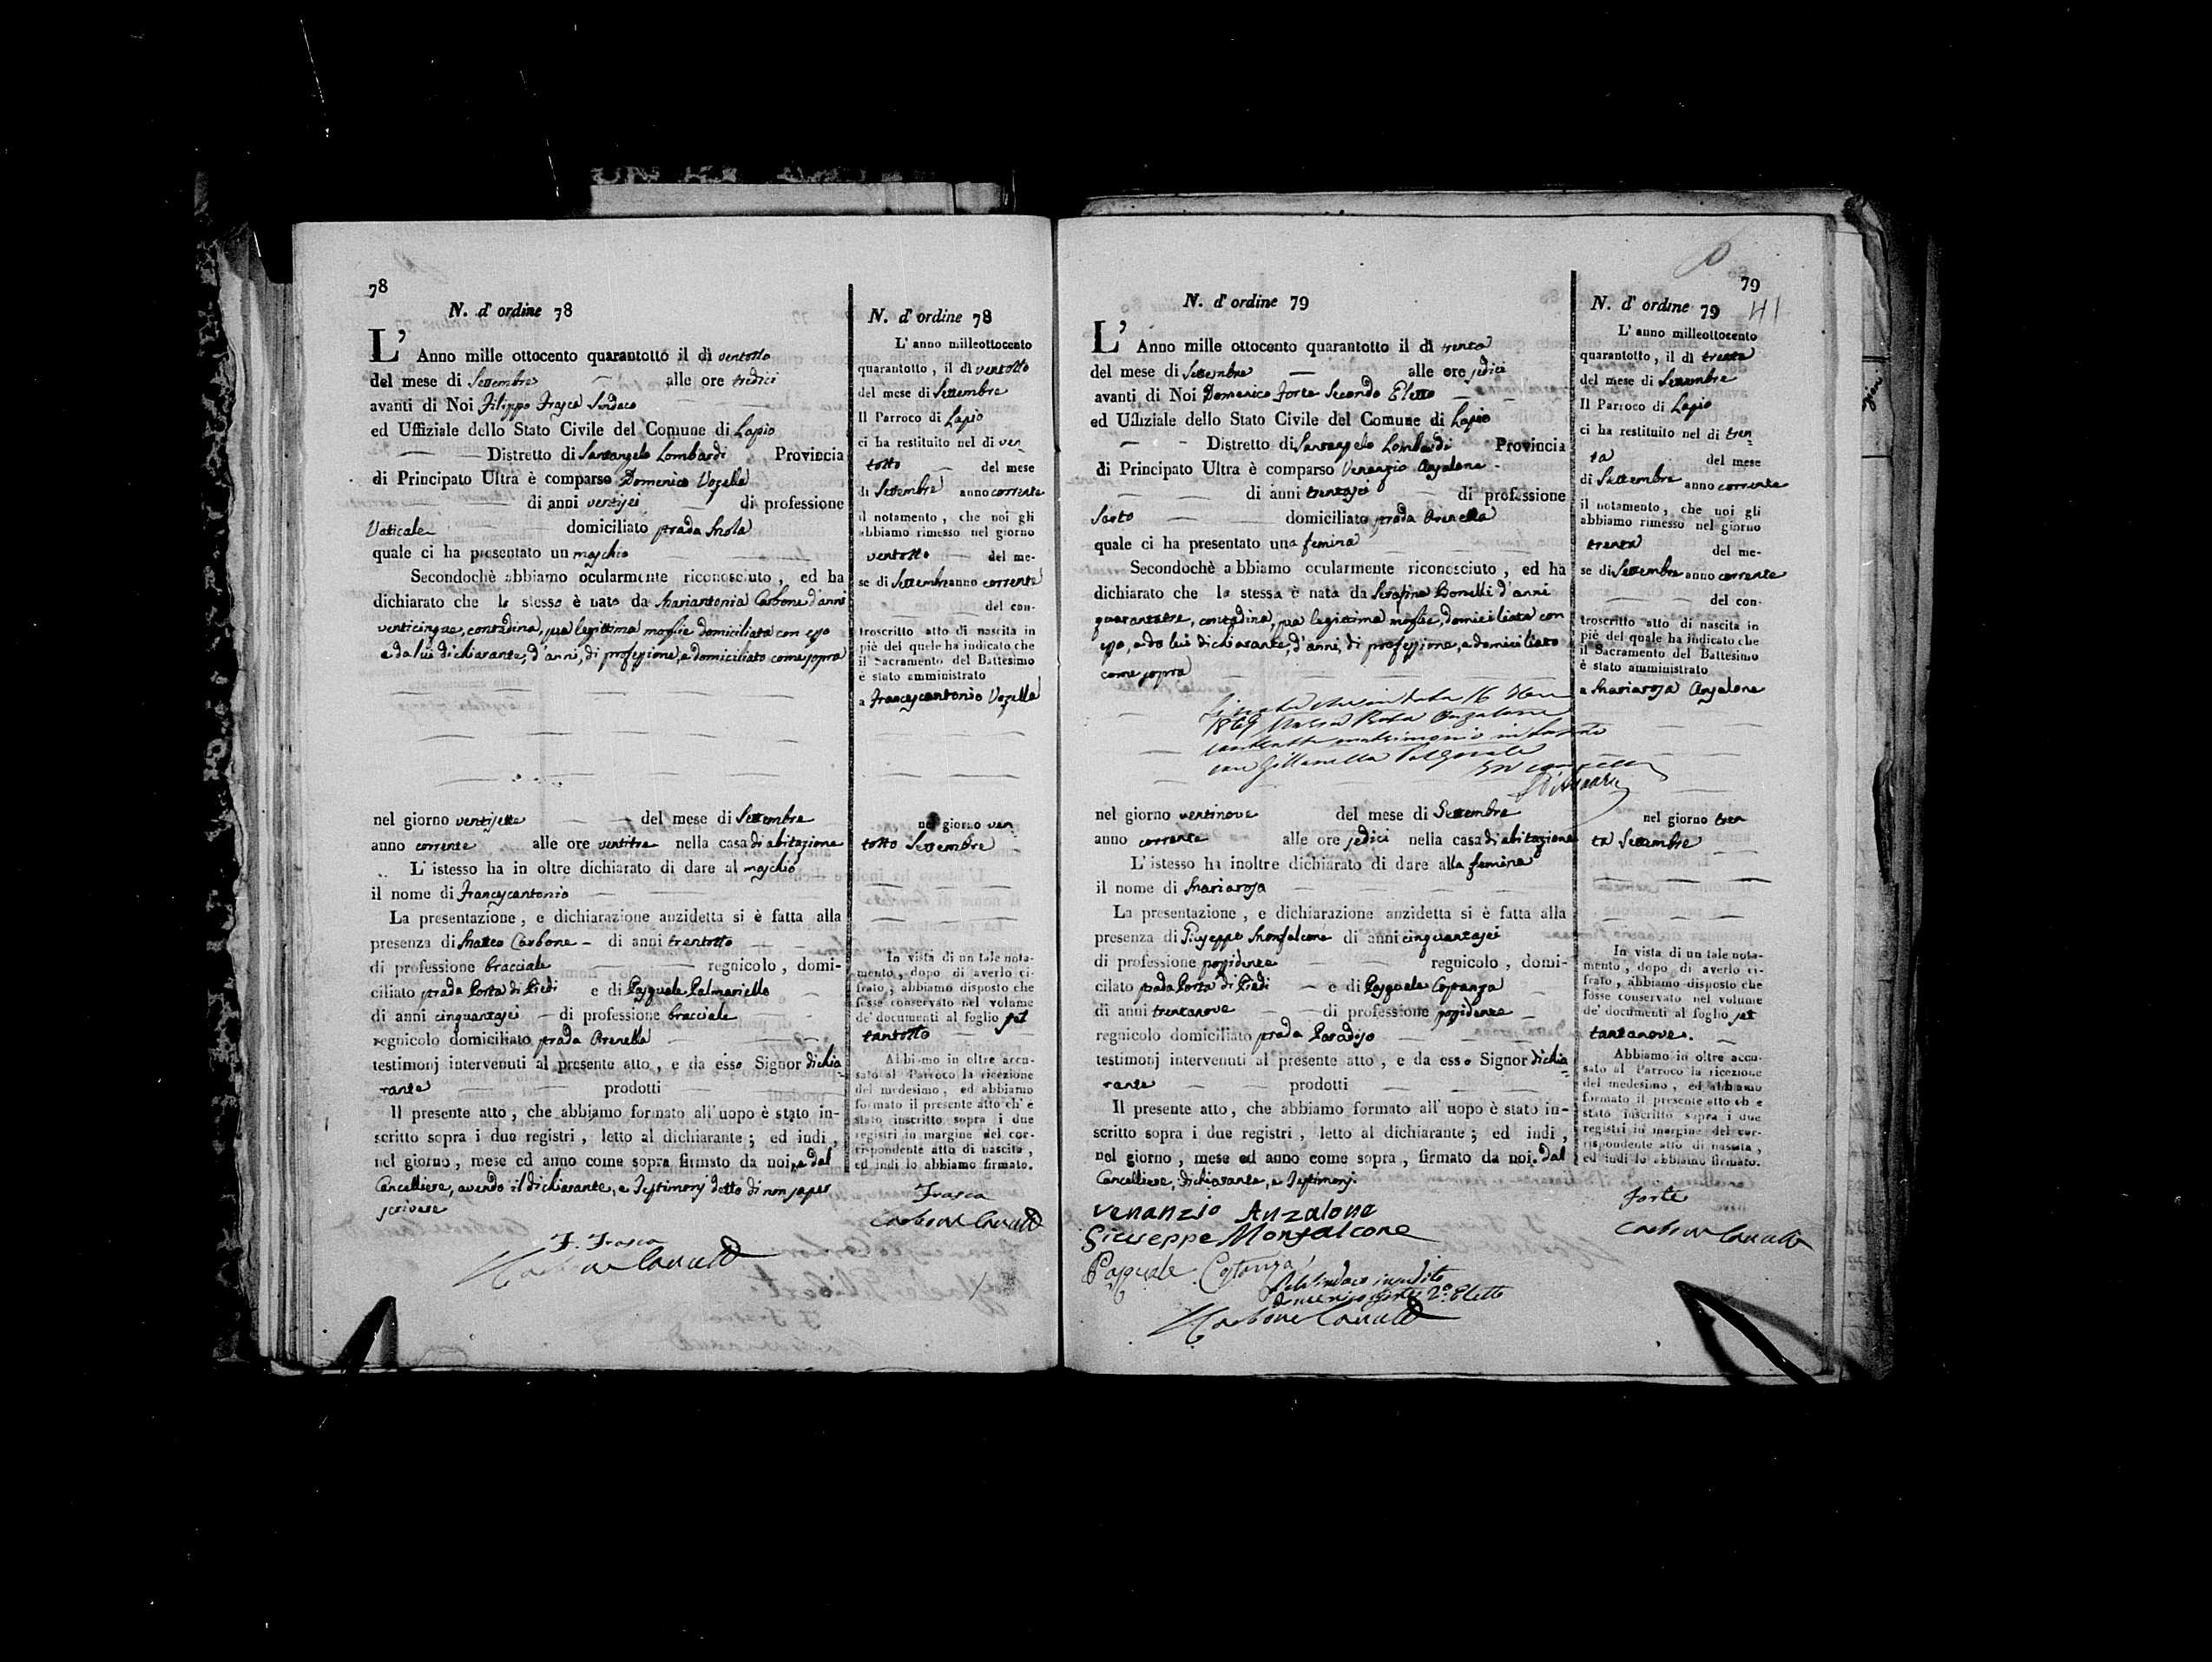 78
N. d' ordine 78
L' Anno mille ottocento quarantotto il dì ventotto
del mese di Settembre alle ore tredici
avanti di Noi Filippo Frasca Sindaco
ed Uffiziale dello Stato Civile del Comune di Lapio
Distretto di Santangelo Lombardi Provincia
di Principato Ultra è comparso Domenico Vozella
di anni ventisei di professione
Vaticale domiciliato strada Mola
quale ci ha presentato un maschio
Secondochè abbiamo ocularmente riconosciuto, ed ha
dichiarato che lo stesso è nato da Mariantonia Carbone d'anni
venticinque, contadina, sua legittima moglie domiciliata con esso
e da lui dichiarante, d'anni, di professione, e domiciliato come sopra
nel giorno ventisette del mese di Settembre
anno corrente alle ore ventitre nella casa di abitazione
L' istesso ha in oltre dichiarato di dare al maschio
il nome di Francescantonio
La presentazione, e dichiarazione anzidetta si è fatta alla
presenza di Matteo Carbone di anni trentotto
di professione bracciale regnicolo, domi-
ciliato strada Porta di Piedi e di Pasquale Palmariello
di anni cinquantasei di professione bracciale
regnicolo domiciliato strada Prenella
testimonj intervenuti al presente atto, e da esso Signor dichia
rante prodotti
Il presente atto, che abbiamo formato all' uopo è stato in-
scritto sopra i due registri, letto al dichiarante; ed indi,
nel giorno, mese ed anno come sopra firmato da noi, e dal
Cancelliere, avendo il dichiarante, e Testimonj detto di non saper
scrivere
F. Frasca
N. d' ordine 78
L' anno milleottocento
quarantotto, il dì ventotto
del mese di Settembre
Il Parroco di Lapio
ci ha restituito nel dì ven
totto del mese
di Settembre anno corrente
il notamento, che noi gli
abbiamo rimesso nel giorno
ventotto del me-
se di Settembre anno corrente
del con-
troscritto atto di nascita in
piè del quale ha indicato che
il Sacramento del Battesimo
è stato amministrato
a Francescantonio Vozella
nel giorno ven
totto Settembre
In vista di un tale nota-
mento, dopo di averlo ci-
frato, abbiamo disposto che
fosse conservato nel volume
de' documenti al foglio set
tantotto
Abbiamo in oltre accu-
sato al Parroco la ricezione
del medesimo, ed abbiamo
formato il presente atto ch' è
stato inscritto sopra i due
registri in margine del cor-
rispondente atto di nascita,
ed indi lo abbiamo firmato.
Frasca
79
N. d' ordine 79
L' Anno mille ottocento quarantotto il dì trenta
del mese di Settembre alle ore sedici
avanti di Noi Domenico Forte Secondo Eletto
ed Uffiziale dello Stato Civile del Comune di Lapio
Distretto di Santangelo Lombardi Provincia
di Principato Ultra è comparso Venanzio Anzalone
di anni trentasei di professione
Sarto domiciliato strada Prenella
quale ci ha presentato una femina
Secondochè abbiamo ocularmente riconosciuto, ed ha
dichiarato che la stessa è nata da Serafina Bonelli d'anni
quarantatre, contadina, sua legittima moglie, domiciliata con
esso, e da lui dichiarante, d'anni, di professione, e domiciliato
come sopra
1869 Maria Rosa Anzalone
nel giorno ventinove del mese di Settembre
anno corrente alle ore sedici nella casa di abitazione
L' istesso ha inoltre dichiarato di dare alla femina
il nome di Mariarosa
La presentazione, e dichiarazione anzidetta si è fatta alla
presenza di Giuseppe Monfalcone di anni cinquantasei
di professione possidente regnicolo, domi-
cilato strada Porta di Piedi e di Pasquale Costanza
di anni trentanove di professione possidente
regnicolo domiciliato strada Paradiso
testimonj intervenuti al presente atto, e da esso Signor dichia
rante prodotti
Il presente atto, che abbiamo formato all' uopo è stato in-
scritto sopra i due registri, letto al dichiarante; ed indi,
nel giorno, mese ed anno come sopra, firmato da noi, dal
Cancelliere, dichiarante, e Testimonj.
Venanzio Anzalone
Giuseppe Monfalcone
Pasquale Costanza
N. d' ordine 79 41
L' anno milleottocento
quarantotto, il dì trenta
del mese di Settembre
Il Parroco di Lapio
ci ha restituito nel dì tren
ta del mese
di Settembre anno corrente
il notamento, che noi gli
abbiamo rimesso nel giorno
trenta del me-
se di Settembre anno corrente
del con-
troscritto atto di nascita in
piè del quale ha indicato che
il Sacramento del Battesimo
è stato amministrato
a Mariarosa Anzalone
nel giorno tren
ta Settembre
In vista di un tale nota-
mento, dopo di averlo ci-
frato, abbiamo disposto che
fosse conservato nel volume
de' documenti al foglio set
tantanove.
Abbiamo in oltre accu-
sato al Parroco la ricezione
del medesimo, ed abbiamo
formato il presente atto ch è
stato inscritto sopra i due
registri in margine del cor-
rispondente atto di nascita,
ed indi lo abbiamo firmato.
Forte